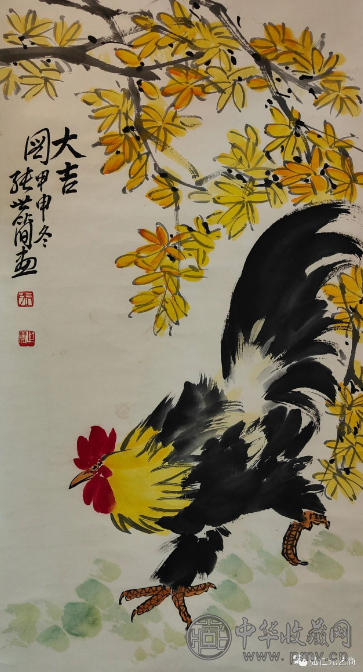 大吉
图甲申冬
张世简画
中华收藏网
www.pmv.cn